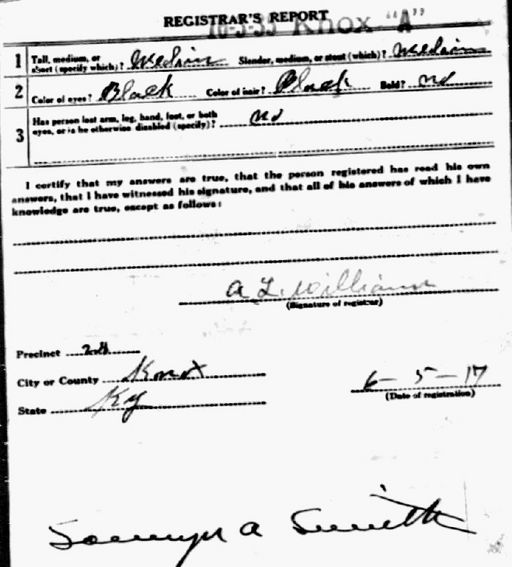 REGISTRAR'S REPORT
Knox "A"
1 Tall, medium, or short (specify which)? Medium Slender, medium, or stout (which)? Medium
2 Color of eyes? Black Color of hair? Black Bald? No
3 Has person lost arm, leg, hand, foot, or both eyes, or is he otherwise disabled (specify)? no
I certify that my answers are true, that the person registered has read his own
answers, that I have witnessed his signature, and that all of his answers of which I have
knowledge are true, except as follows:
A L. Williams
(Signature of registrar)
Precinct 24
City or County Knox
State Ky
6 - 5 - 17
(Date of registration)
A Smith